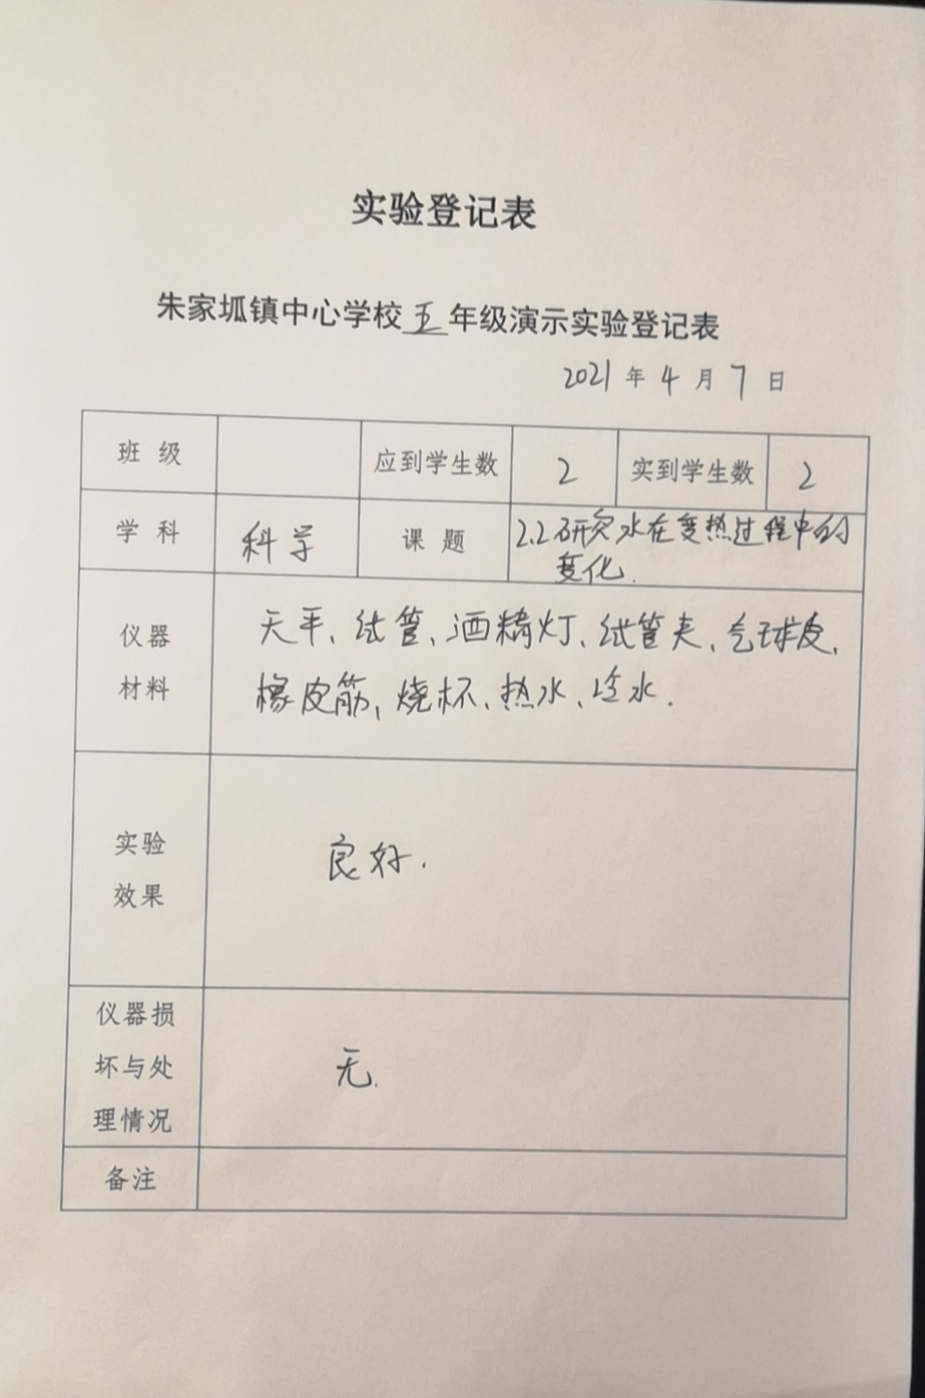 实验登记表
朱家坬镇中心学校五年级演示实验登记表
2021年4月7日
班级 应到学生数 2 实到学生数 2
学科 科学 课题 2.2研究水在变热过程中的
变化.
仪器 天平、试管、酒精灯、试管夹、气球皮、
材料 橡皮筋、烧杯、热水、冷水.
实验
良好.
效果
仪器损
坏与处 无.
理情况
备注